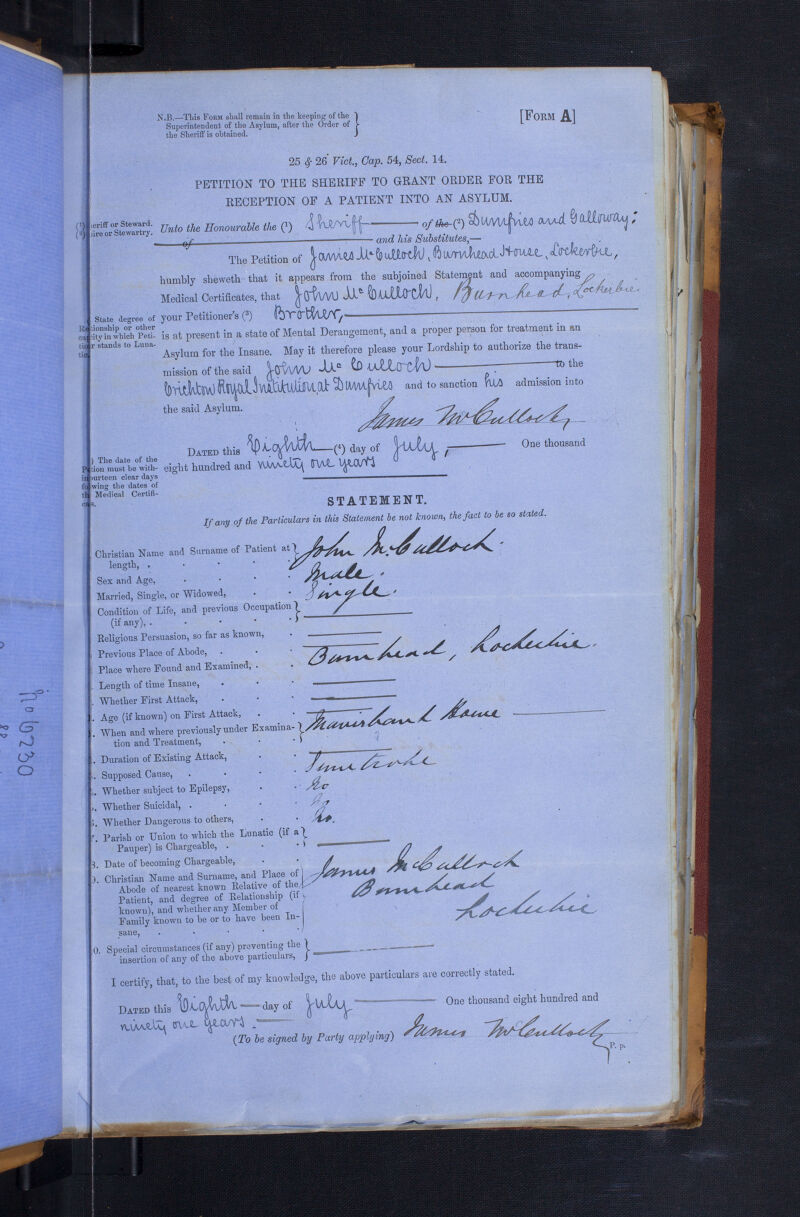 N.B.—This Form shall remain in the keeping of the
Superintendent of the Asylum, after the Order of
the Sheriff is obtained.
[Form A]
25 & 26 Vict., Cap. 54, Sect. 14.
PETITION TO THE SHERIFF TO GRANT ORDER FOR THE
RECEPTION OF A PATIENT INTO AN ASYLUM.
eriff or Steward.
ire or Stewartry.
Unto the Honourable the (1) Sheriff of the (2) Dumfries and Galloway:
of and his Substitutes,—
The Petition of James McCulloch, Burnhead House, Lockerbie,
humbly sheweth that it appears from the subjoined Statement and accompanying
Medical Certificates, that John McCulloch, Burnhead, Lockerbie.
State degree of
tionship or other
city in which Peti-
r stands to Luna-
your Petitioner's (3) Brother,
is at present in a state of Mental Derangement, and a proper person for treatment in an
Asylum for the Insane. May it therefore please your Lordship to authorize the trans-
mission of the said John McCulloch to the
Crichton Royal Institution, at Dumfries and to sanction his admission into
the said Asylum.
James McCulloch
) The date of the
tion must be with-
ourteen clear days
wing the dates of
Medical Certifi-
Dated this Eighth (4) day of July, One thousand
eight hundred and ninety one years
STATEMENT.
If any of the Particulars in this Statement be not known, the fact to be so stated.
Christian Name and Surname of Patient at
length, . John McCulloch.
Sex and Age, Male.
Married, Single, or Widowed, Single.
Condition of Life, and previous Occupation
(if any), .
Religious Persuasion, so far as known,
Previous Place of Abode, .
Place where Found and Examined, . Burnhead, Lockerbie.
Length of time Insane,
Whether First Attack,
. Age (if known) on First Attack,
. When and where previously under Examina-
tion and Treatment, Mavisbank House
. Duration of Existing Attack,
. Supposed Cause, . Sunstroke
. Whether subject to Epilepsy, No
. Whether Suicidal, .
. Whether Dangerous to others, No.
. Parish or Union to which the Lunatic (if a
Pauper) is Chargeable, .
8. Date of becoming Chargeable,
9. Christian Name and Surname, and Place of
Abode of nearest known Relative of the
Patient, and degree of Relationship (if
known), and whether any Member of
Family known to be or to have been In-
sane,
James McCulloch
Burnhead
Lockerbie
0. Special circumstances (if any) preventing the
insertion of any of the above particulars,
I certify, that, to the best of my knowledge, the above particulars are correctly stated.
Dated this Eighth day of July One thousand eight hundred and
ninety one years.
(To be signed by Party applying) James McCulloch
P. p.
No 6230